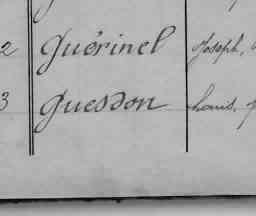 2 Guérinel Joseph,
3 Guesdon Louis,